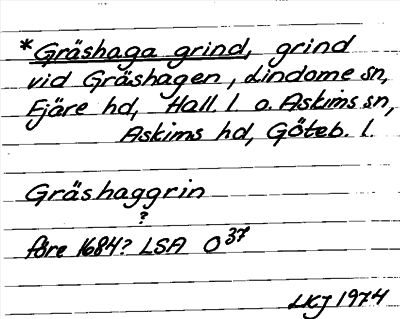 *Gräshaga grind, grind
vid Gräshagen, Lindome sn,
Fjäre hd, Hall. l. o. Askims sn,
Askims hd, Göteb. l.
Gräshaggrin
?
före 1684? LSA O³⁷
LKJ 1974